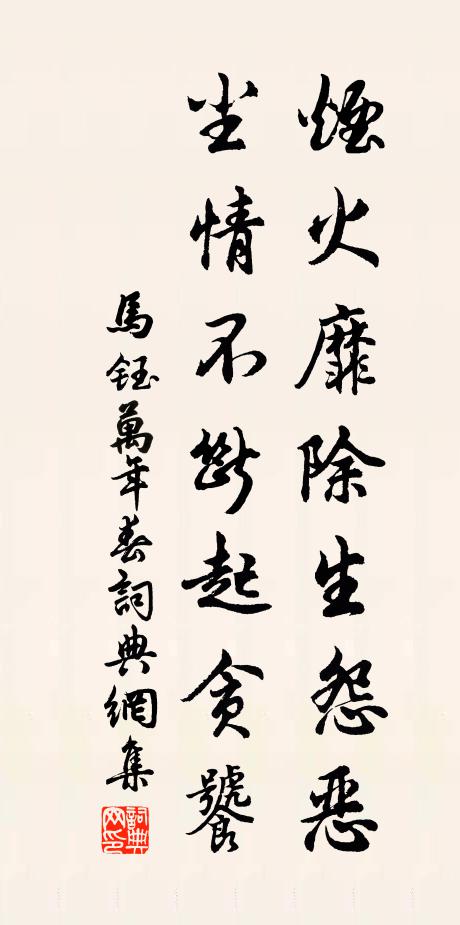 煙火靡除生怨惡
塵情不斷起貪饕
馬鈺萬年春詞典網集
詞典網印